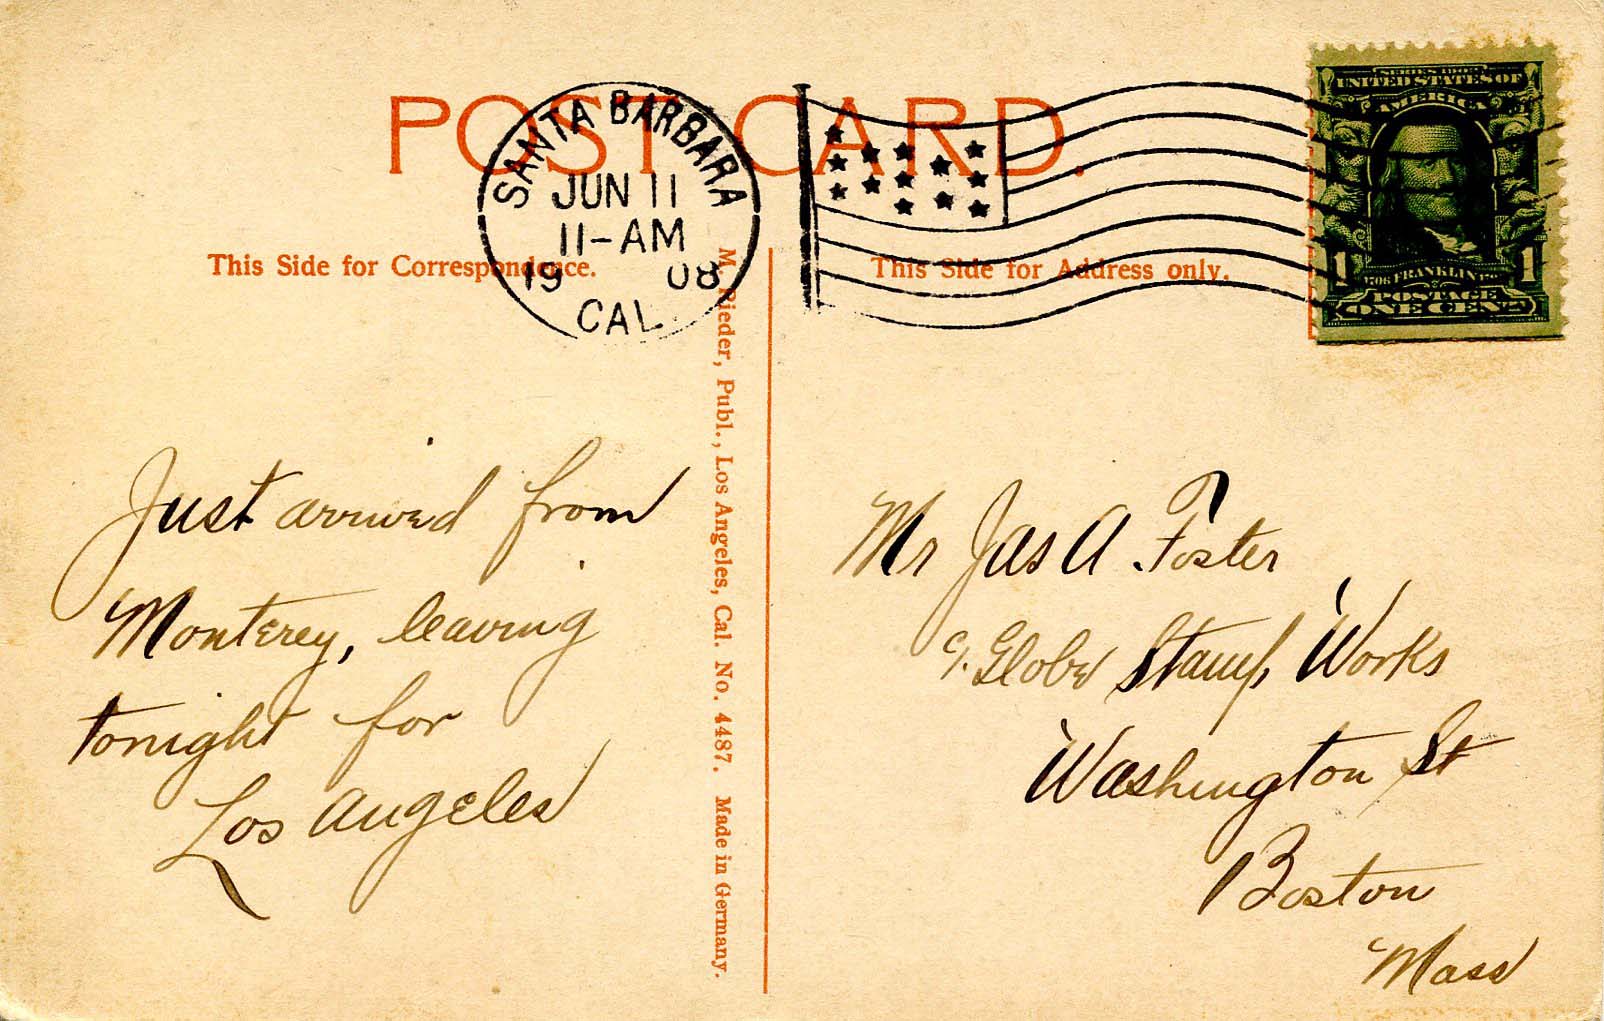 POST CARD.
SANTA BARBARA
JUN 11
11-AM
1908
CAL.
SERIES 1902
UNITED STATES OF
AMERICA
1 FRANKLIN 1
POSTAGE
ONE CENT
This Side for Correspondence.
This Side for Address only.
M. Rieder, Publ., Los Angeles, Cal. No. 4487. Made in Germany.
Just arrived from
Monterey, leaving
tonight for
Los Angeles
Mr Jas A. Foster
c/. Globe Stamp Works
Washington St
Boston
Mass